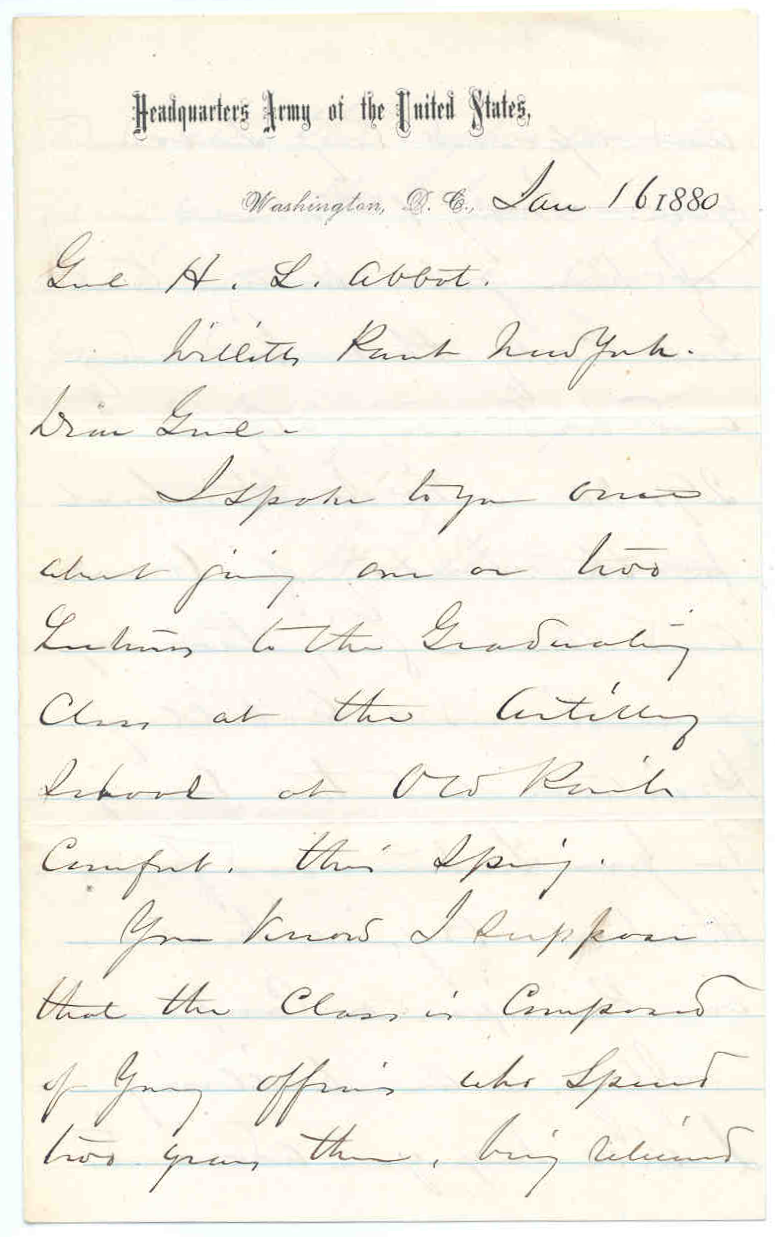 Headquarters Army of the United States,
Washington, D. C., Jan 16 1880
Genl H. L. Abbot.
Willetts Point New York.
Dear Genl -
I spoke to you once
about giving one or two
Lectures to the Graduating
Class at the Artillery
School at Old Point
Comfort. this Spring.
You Know I suppose
that the Class is Composed
of Young officers who Spend
two years there, being relieved